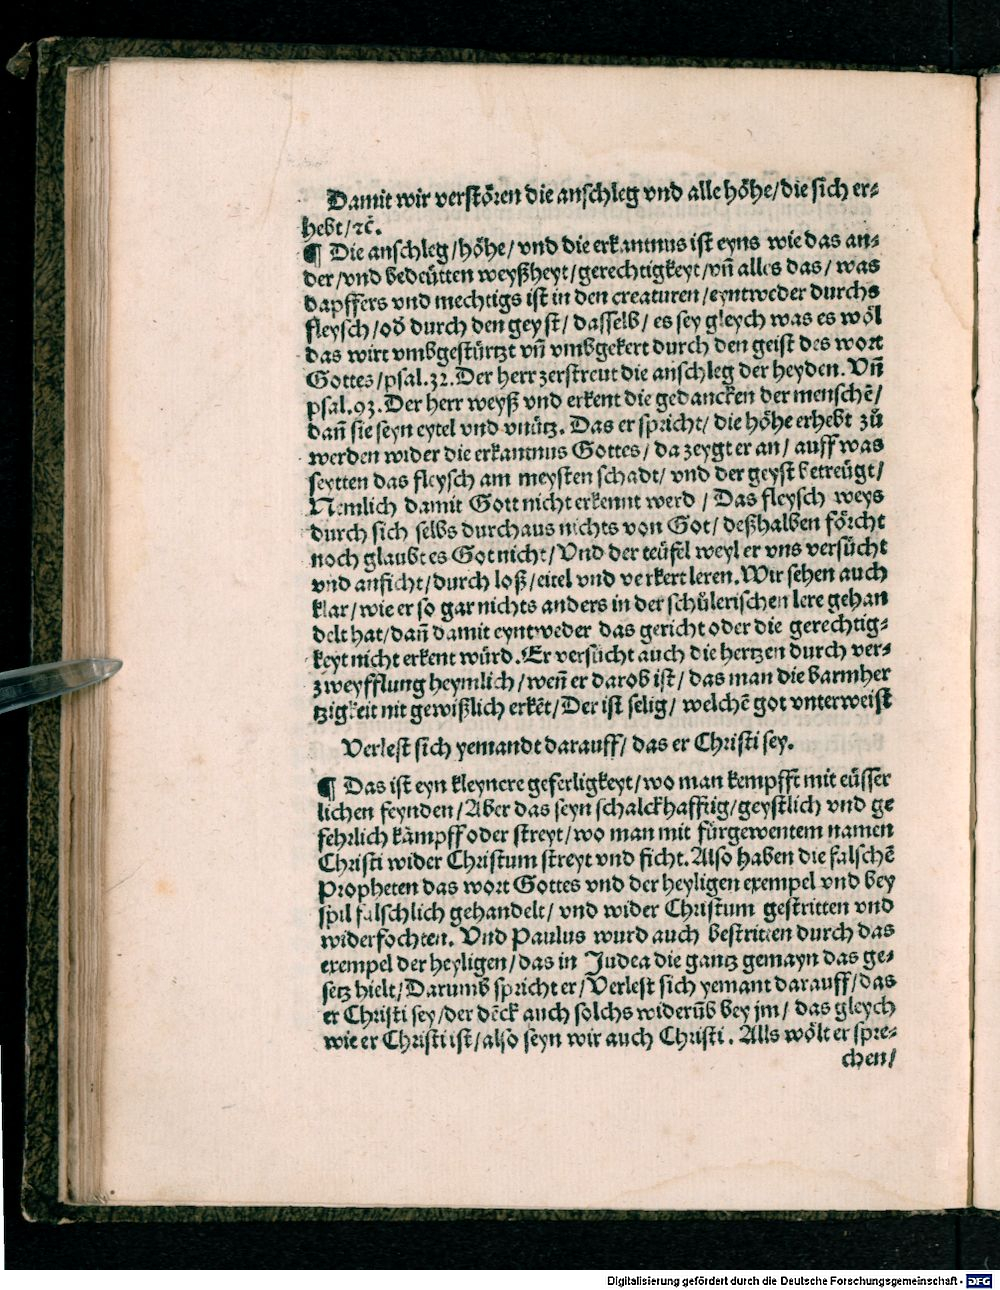 Damit wir verstören die anschleg vnd alle höhe/die sich er⸗
hebt/ꝛc̃.
¶ Die anschleg/höhe/vnd die erkantnus ist eyns wie das an⸗
der/vnd bedeütten weyßheyt/gerechtigkeyt/vñ alles das/was
dapffers vnd mechtigs ist in den creaturen/eyntweder durchs
fleysch/od̕ durch den geyst/dasselb/es sey gleych was es wöl
das wirt vmbgestürtzt vñ vmbgekert durch den geist des wort
Gottes/psal.32.Der herr zerstreut die anschleg der heyden.Vñ
psal.93.Der herr weyß vnd erkent die gedancken der menschẽ/
dañ sie seyn eytel vnd vnütz. Das er spricht/die höhe erhebt zů
werden wider die erkantnus Gottes/da zeygt er an/auff was
seytten das fleysch am meysten schadt/vnd der geyst betreügt/
Nemlich damit Gott nicht erkennt werd/Das fleysch weys
durch sich selbs durchaus nichts von Got/deßhalben förcht
noch glaubt es Got nicht/Vnd der teüfel weyl er vns versücht
vnd anficht/durch loß/eitel vnd verkert leren.Wir sehen auch
klar/wie er so gar nichts anders in der schülerischen lere gehan
delt hat/dañ damit eyntweder das gericht oder die gerechtig⸗
keyt nicht erkent würd.Er versücht auch die hertzen durch ver⸗
zweyfflung heymlich/weñ er darob ist/das man die barmher
tzigkeit nit gewißlich erkẽt/Der ist selig/welchẽ got vnterweist
Verlest sich yemandt darauff/das er Christi sey.
¶ Das ist eyn kleynere geferligkeyt/wo man kempfft mit eüsser
lichen feynden/Aber das seyn schalckhafftig/geystlich vnd ge
fehrlich kämpff oder streyt/wo man mit fürgewentem namen
Christi wider Christum streyt vnd ficht.Also haben die falschẽ
Propheten das wort Gottes vnd der heyligen exempel vnd bey
spil falschlich gehandelt/vnd wider Christum gestritten vnd
widerfochten. Vnd Paulus wurd auch bestritten durch das
exempel der heyligen/das in Judea die gantz gemayn das ge⸗
setz hielt/Darumb spricht er/Verlest sich yemant darauff/das
er Christi sey/der dẽck auch solchs widerũb bey jm/das gleych
wie er Christi ist/also seyn wir auch Christi. Alls wölt er spre⸗
chen/
Digitalisierung gefördert durch die Deutsche Forschungsgemeinschaft - DFG